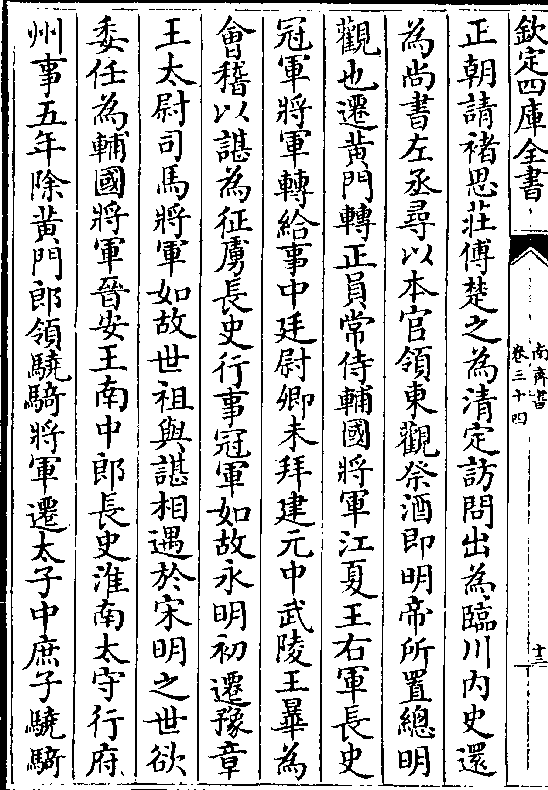 欽定四庫全書
南齊書
卷三十四
十三
正朝請禇思莊傅楚之為清定訪問出為臨川内史還
為尚書左丞尋以本官領東觀祭酒即明帝所置總明
觀也遷黄門轉正員常侍輔國將軍江夏王右軍長史
冠軍將軍轉給事中廷尉卿未拜建元中武陵王曅為
會稽以諶為征虜長史行事冠軍如故永明初遷豫章
王太尉司馬將軍如故世祖與諶相遇於宋明之世欲
委任為輔國將軍晉安王南中郎長史淮南太守行府
州事五年除黄門郎領驍騎將軍遷太子中庶子驍騎